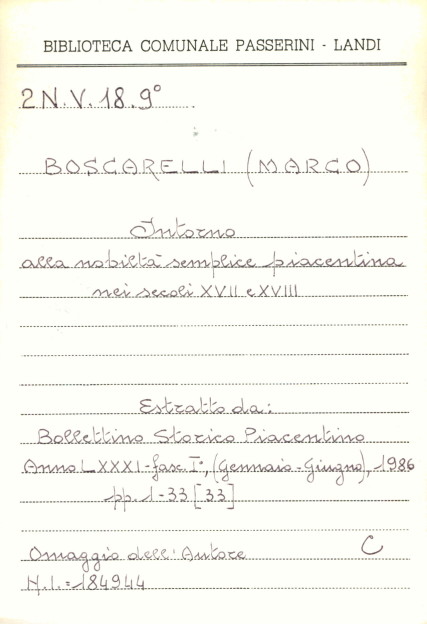 BIBLIOTECA COMUNALE PASSERINI - LANDI
2 N.V. 18. 9°
BOSCARELLI (MARCO)
Intorno
alla nobiltà semplice piacentina
nei secoli XVII e XVIII
Estratto da:
Bollettino Storico Piacentino
Anno LXXXI - fasc. I°, (Gennaio - Giugno), 1986
pp. 1-33 [33]
Omaggio dell'Autore C
N.I. = 184944